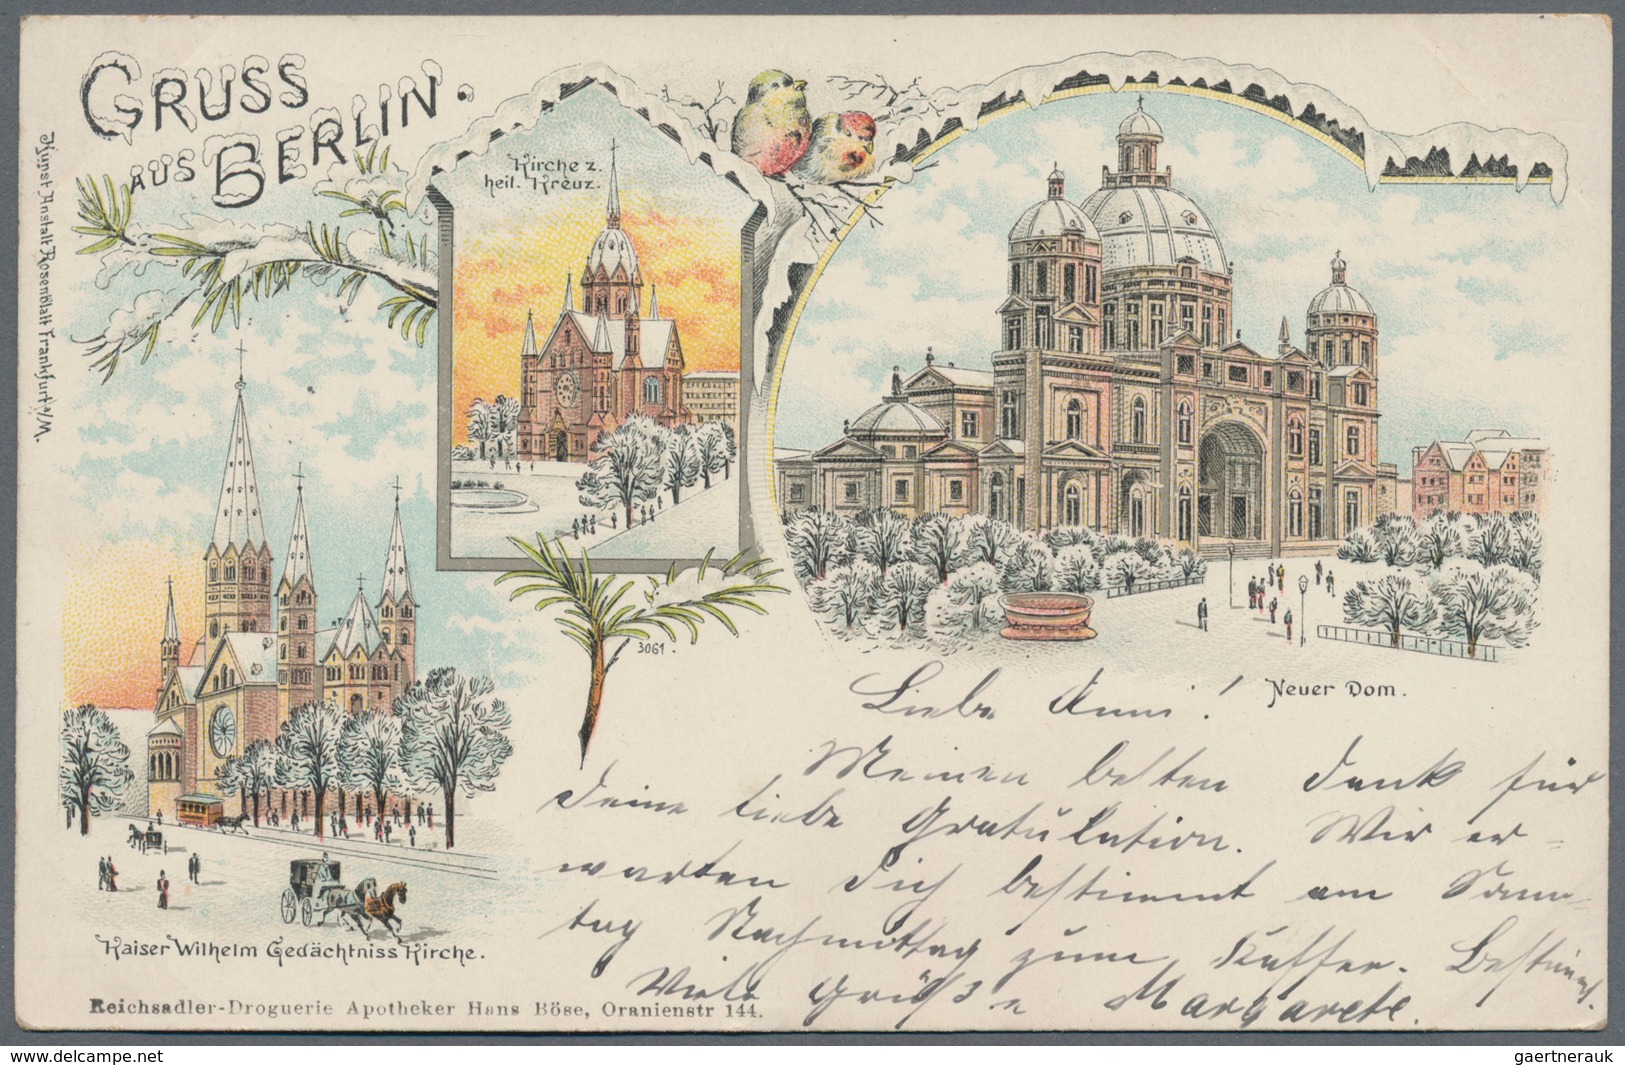 GRUSS
AUS BERLIN.
Kunst-Anstalt Rosenblatt Frankfurt a/M.
Kirche z.
heil. Kreuz.
3061.
Neuer Dom.
Kaiser Wilhelm Gedächtniss Kirche.
Liebe Anni!
Meinen besten Dank für
Deine liebe Gratulation. Wir er=
warten Dich bestimmt am Sonn=
tag Nachmittag zum Kaffee. Bestimmt.
Viele Grüße Margarete.
Reichsadler-Droguerie Apotheker Hans Böse, Oranienstr 144.
www.delcampe.net
gaertnerauk